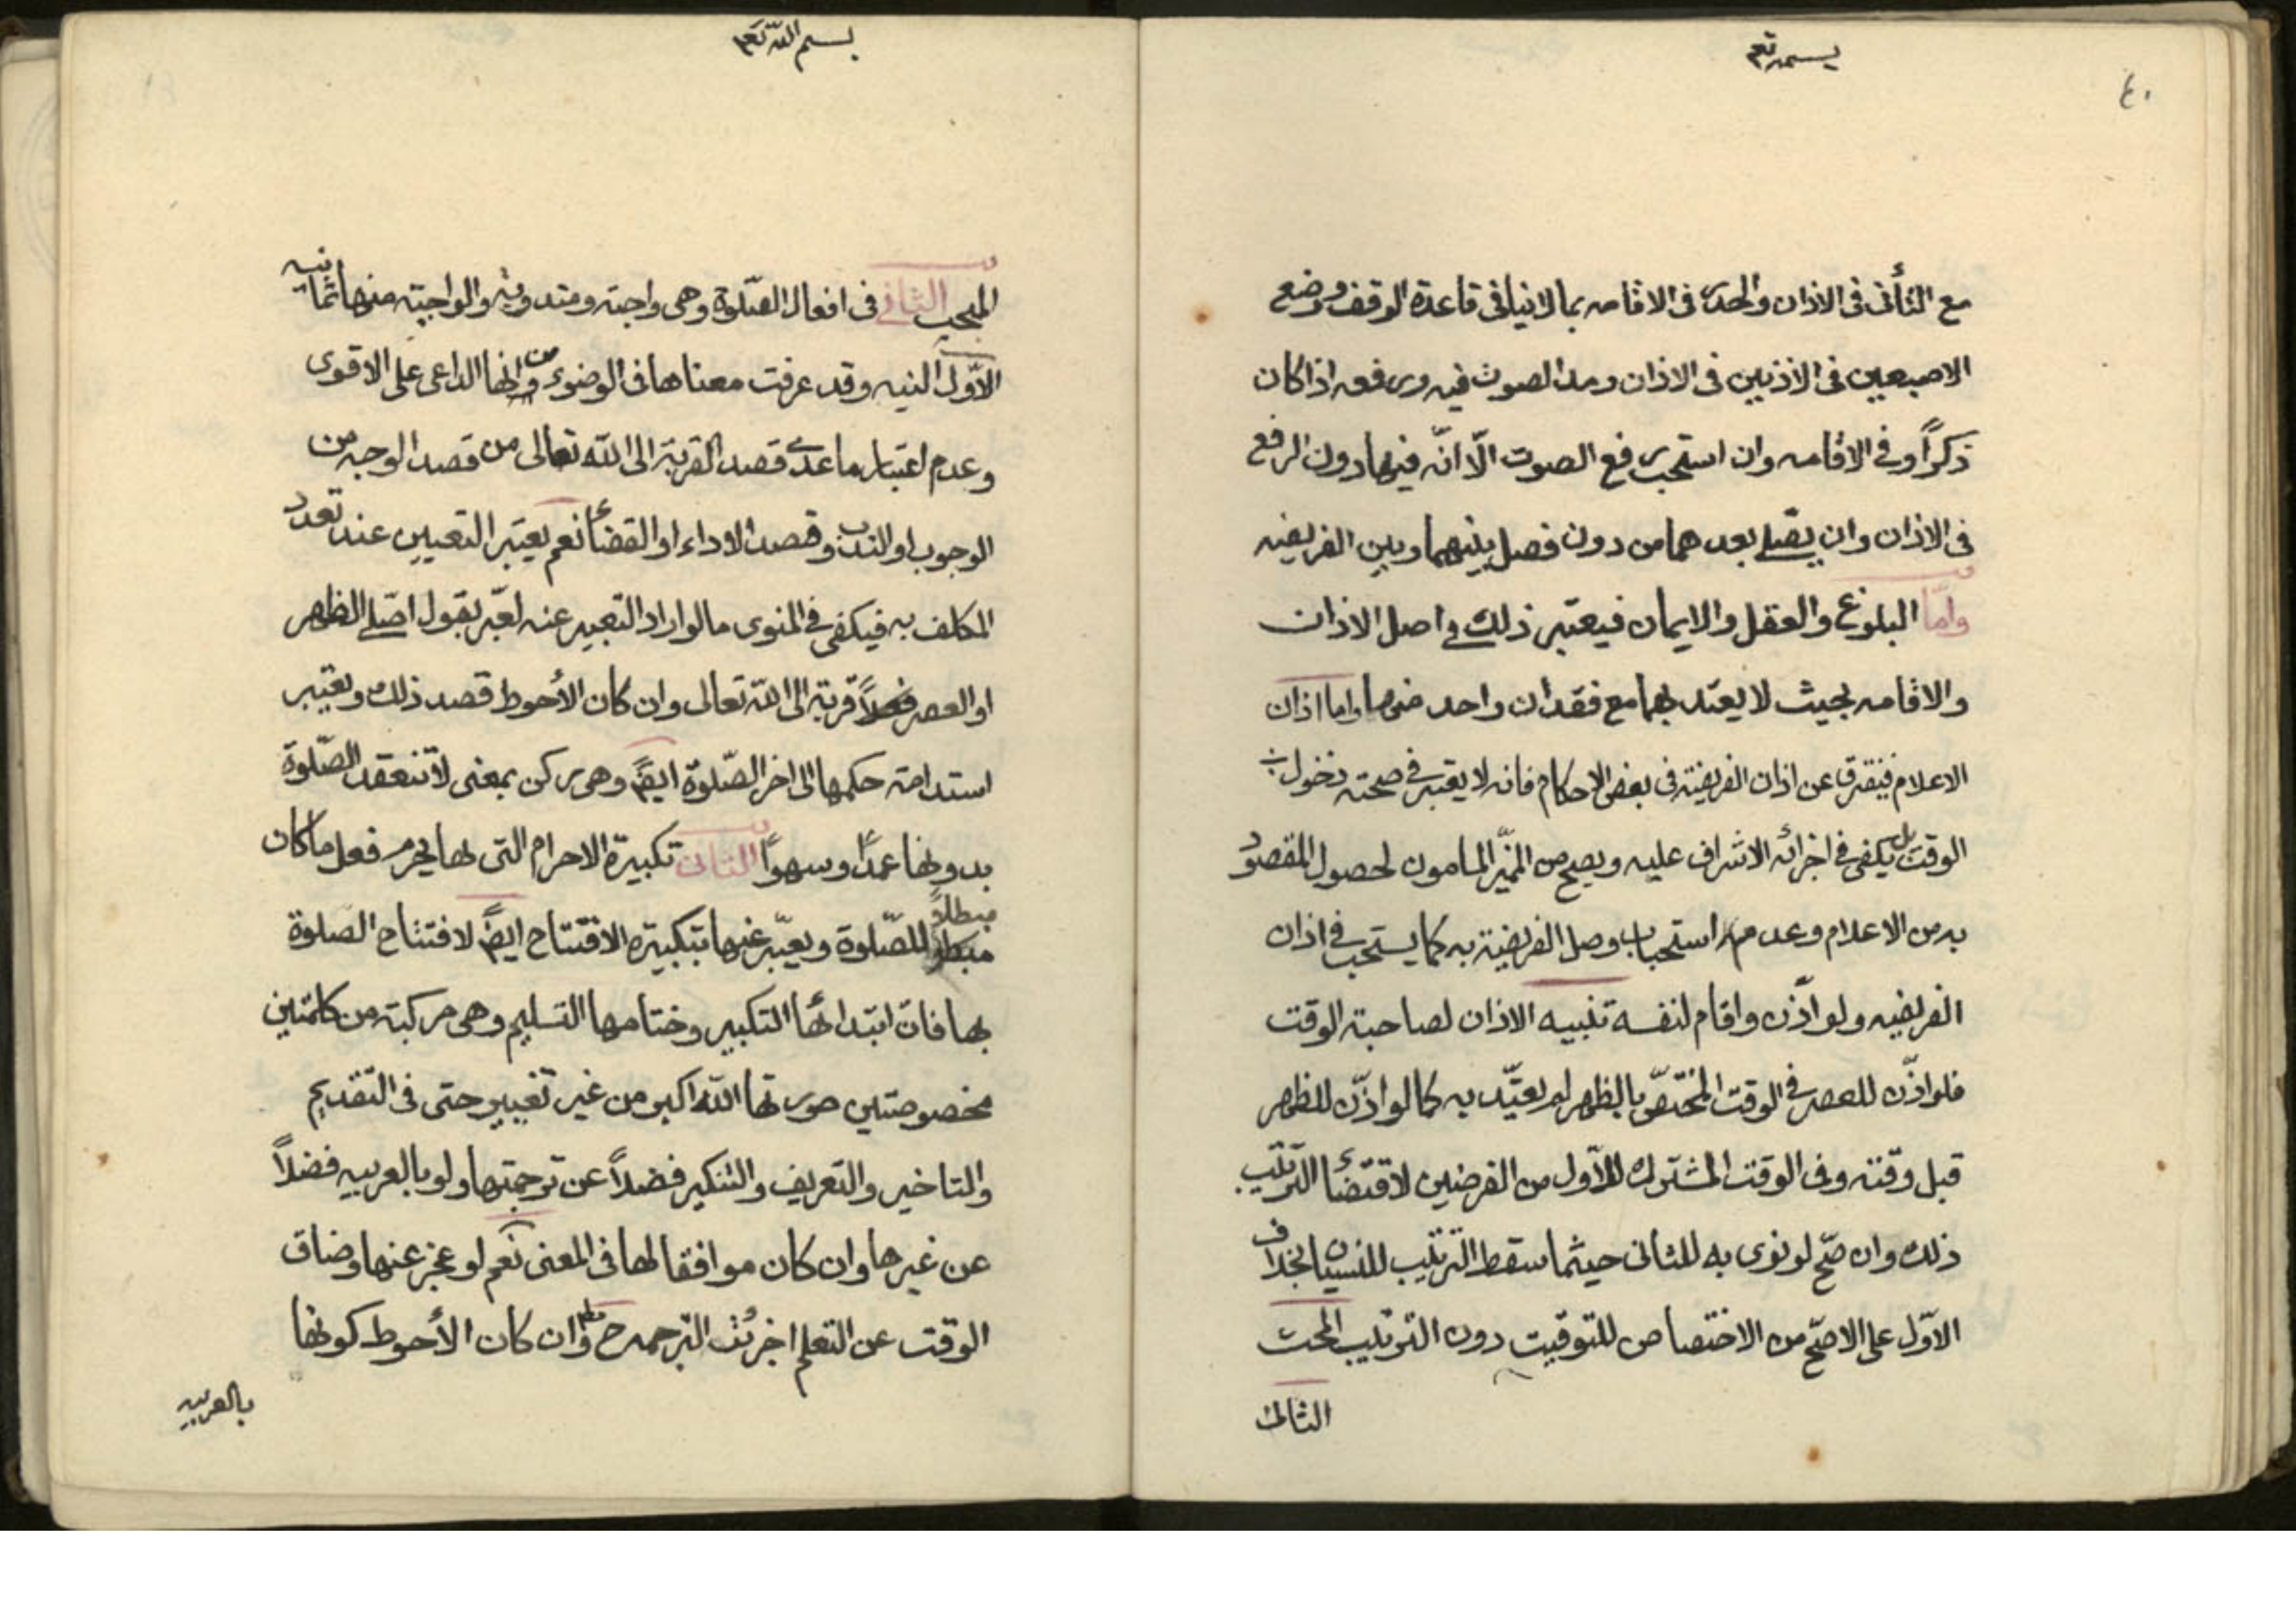 بسمه تع
٤٠
مع التأنى فى الاذان والحدر فى الاقامه بما لا ينافى قاعدة الوقف ووضع
الاصبعين فى الاذنين فى الاذان ومد الصوت فيه ورفعه اذا كان
ذكراً وفى الاقامه وان استحب رفع الصوت الّا انّه فيها دون الرفع
فى الاذان وان يصّلى بعدهما من دون فصل بينهما وبين الفريضه
وامّا البلوغ والعقل والايمان فيعتبر ذلك فى اصل الاذان
والاقامه بحيث لا يعتد بهما مع فقدان واحد منها واما اذان
الاعلام فيفترق عن اذان الفريضة فى بعض الاحكام فانه لا يعتبر فى صحته دخول
الوقت بل يكفى فى اجزائه الاشراف عليه ويصح من المميّز المامون لحصول المقصود
به من الاعلام وعدم استحباب وصل الفريضة به كما يستحب فى اذان
الفريضه ولو اذّن واقام لنفسه تنبيه الاذان لصاحبة الوقت
فلو اذّن للعصر فى الوقت المختصّ بالظهر لم يعتّد به كما لو اذّن للظهر
قبل وقته وفى الوقت المشترك للأوّل من الفرضين لاقتضاء الترتيب
ذلك وان صّح لو نوى به للثانى حيثما سقط الترتيب للنسيان بخلاف
الاوّل على الاصّح من الاختصاص للتوقيت دون الترتيب المحت
الثانى
بسم الله تع
المبحث الثانى فى افعال الصّلوة وهى واجبة ومندوبة والواجبة منها ثمانيه
الأوّل النيه وقد عرفت معناها فى الوضوء من وانها الداعى على الاقوى
وعدم اعتبار ما عدى قصد القربة الى الله تعالى من قصد الوجه من
الوجوب او الندب وقصد الاداء او القضاء نعم يعتبر التعيين عند تعدد
المكلف به فيكفى فى المنوى ما لو اراد التعبير عنه لعبّر بقول اصّلى الظهر
او العصر مثلاً قربة الى الله تعالى وان كان الأحوط قصد ذلك ويعتبر
استدامة حكمها الى اخر الصّلوة ايضً وهى ركن بمعنى لا تنعقد الصّلوة
بدونها عمداً وسهواً الثانى تكبيرة الاحرام التى بها يحرم فعل ما كان
مبطلاً للصّلوة ويعبّر عنها بتكبيره الافتتاح ايضً لافتتاح الصلوة
بها فان ابتدائها التكبير وختامها التسليم وهى مركبة من كلمتين
مخصوصتين صورتها الله اكبر من غير تغيير حتى فى التقديم
والتاخير والتعريف والتنكير فضلاً عن ترجمتها ولو بالعربيه فضلاً
عن غيرها وان كان موافقا لها فى المعنى نعم لو عجز عنها وضاق
الوقت عن التعلم اجزئت الترجمه ح وان كان الأحوط كونها
بالعربيه